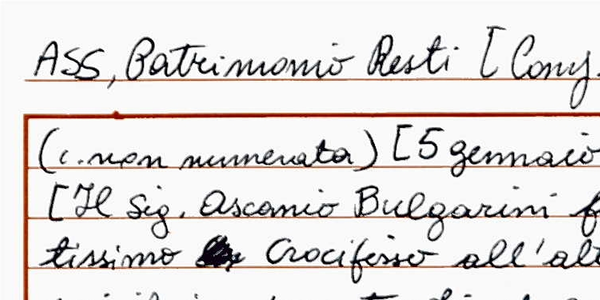 ASS, Patrimonio Resti [Cong.
(c. non numerata) [5 gennaio
[Il Sig. Ascanio Bulgarini
tissimo Crocifisso all'alt